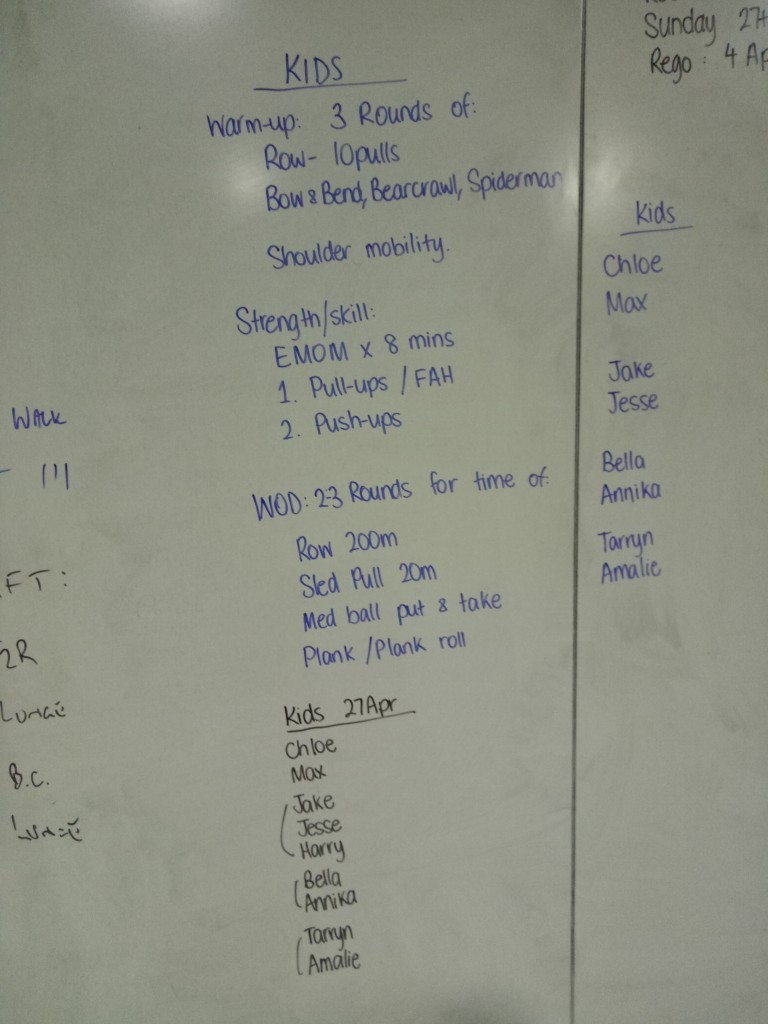 KIDS
Warm-up: 3 Rounds of:
Row- 10pulls
Bow & Bend, Bearcrawl, Spiderman
Shoulder mobility.
Strength/skill:
EMOM x 8 mins
1. Pull-ups / FAH
2. Push-ups
WOD: 2-3 Rounds for time of:
Row 200m
Sled Pull 20m
Med ball put & take
Plank /Plank roll
Kids 27Apr
Chloe
Max
Jake
Jesse
Harry
Bella
Annika
Tarryn
Amalie
Sunday 27
Rego: 4 Ap
Kids
Chloe
Max
Jake
Jesse
Bella
Annika
Tarryn
Amalie
WALK
FT:
2R
LUNGE
B.C.